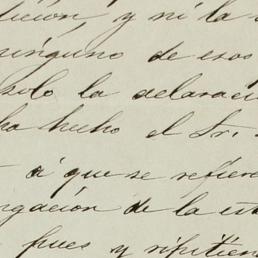 ición y ni la
ninguno de esos
solo la declaraci
ha hecho el Sr.
á que se refier
gación de la est
pues y repitien